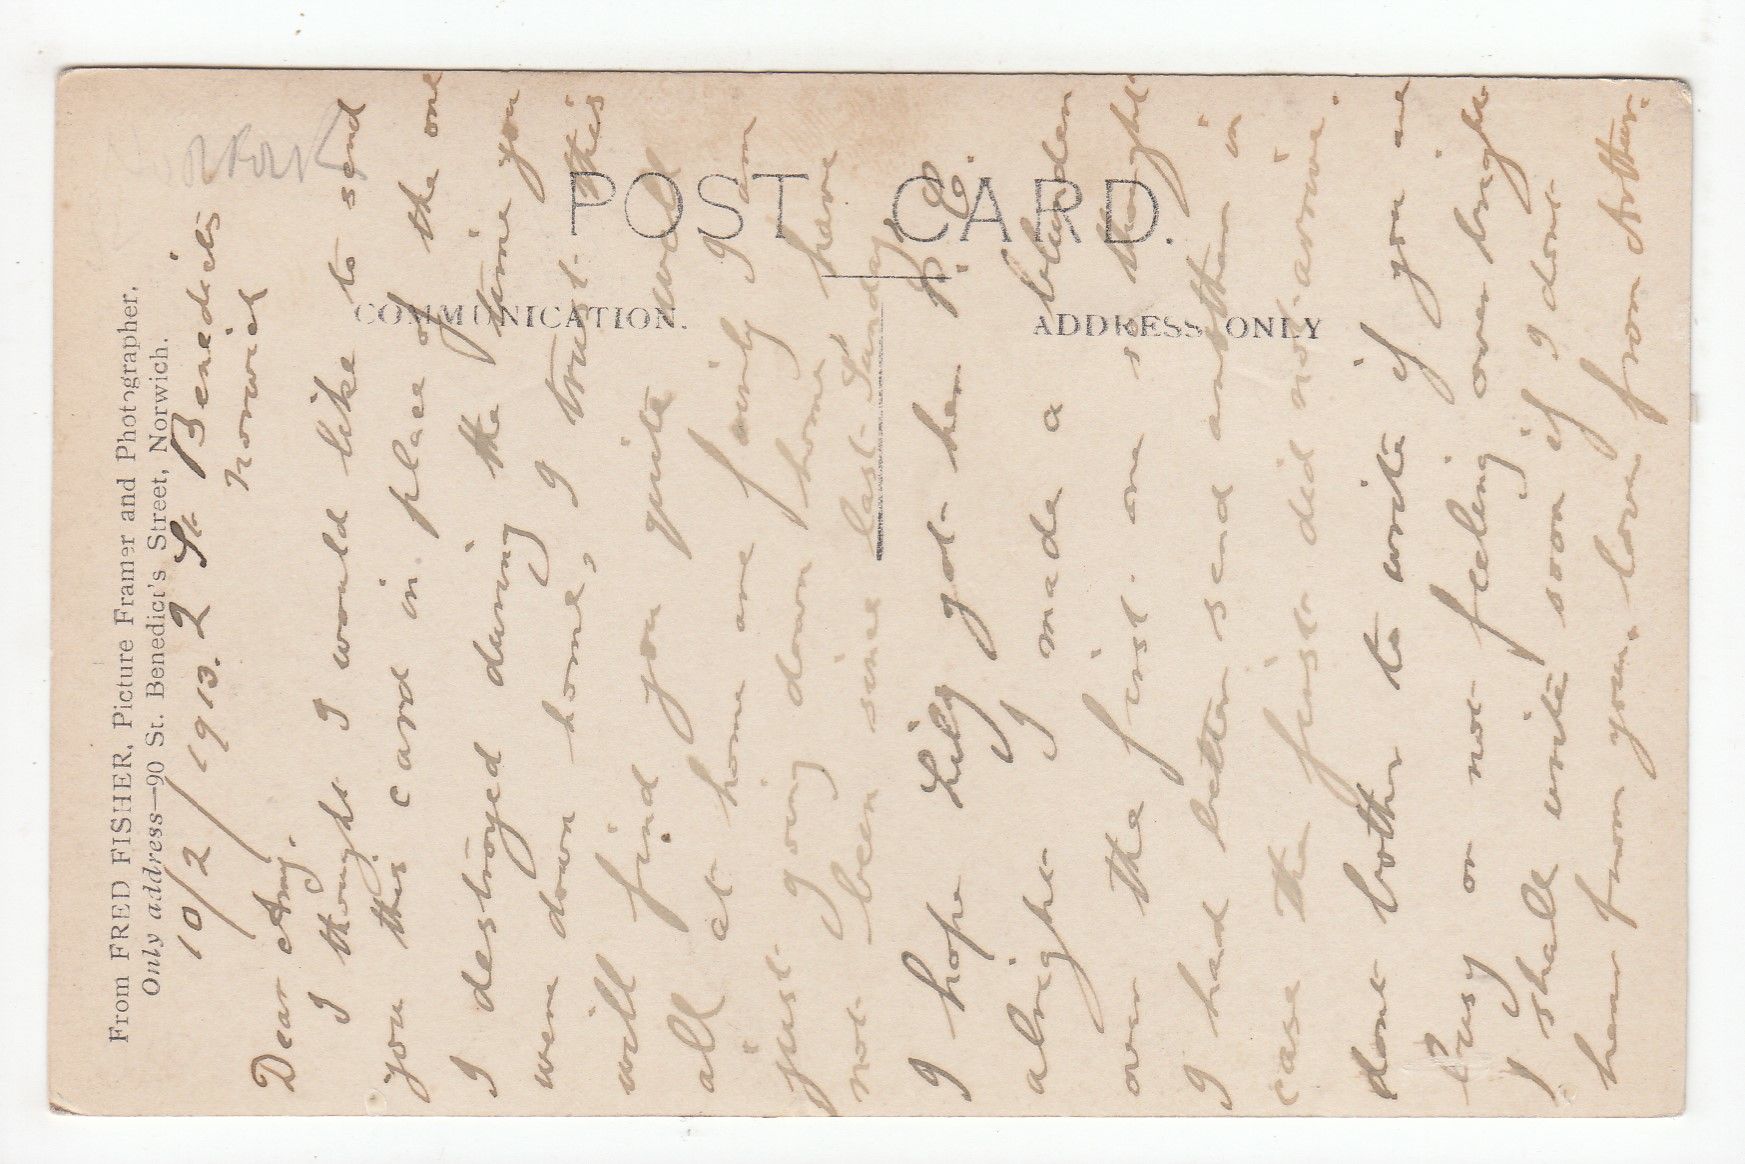 POST CARD.
COMMUNICATION.
ADDRESS ONLY
From FRED FISHER, Picture Framer and Photographer.
Only address—90 St. Benedict's Street, Norwich.
10/2/1913. 2 St Benedicts
Norwich
Dear Amy.
I thought I would like to send
you this card in place of the one
I destroyed during the time you
were down home, I trust this
will find you quite well
all at home are fairly I am
just going down home have
not been since last Sunday
I hope Lily got her P.C.
alright I made a blunder
over the first one so thought
I had better send another in
case the first did not arrive.
dont bother to write if you are
busy or not feeling over bright
I shall write soon if I dont
hear from you. love from